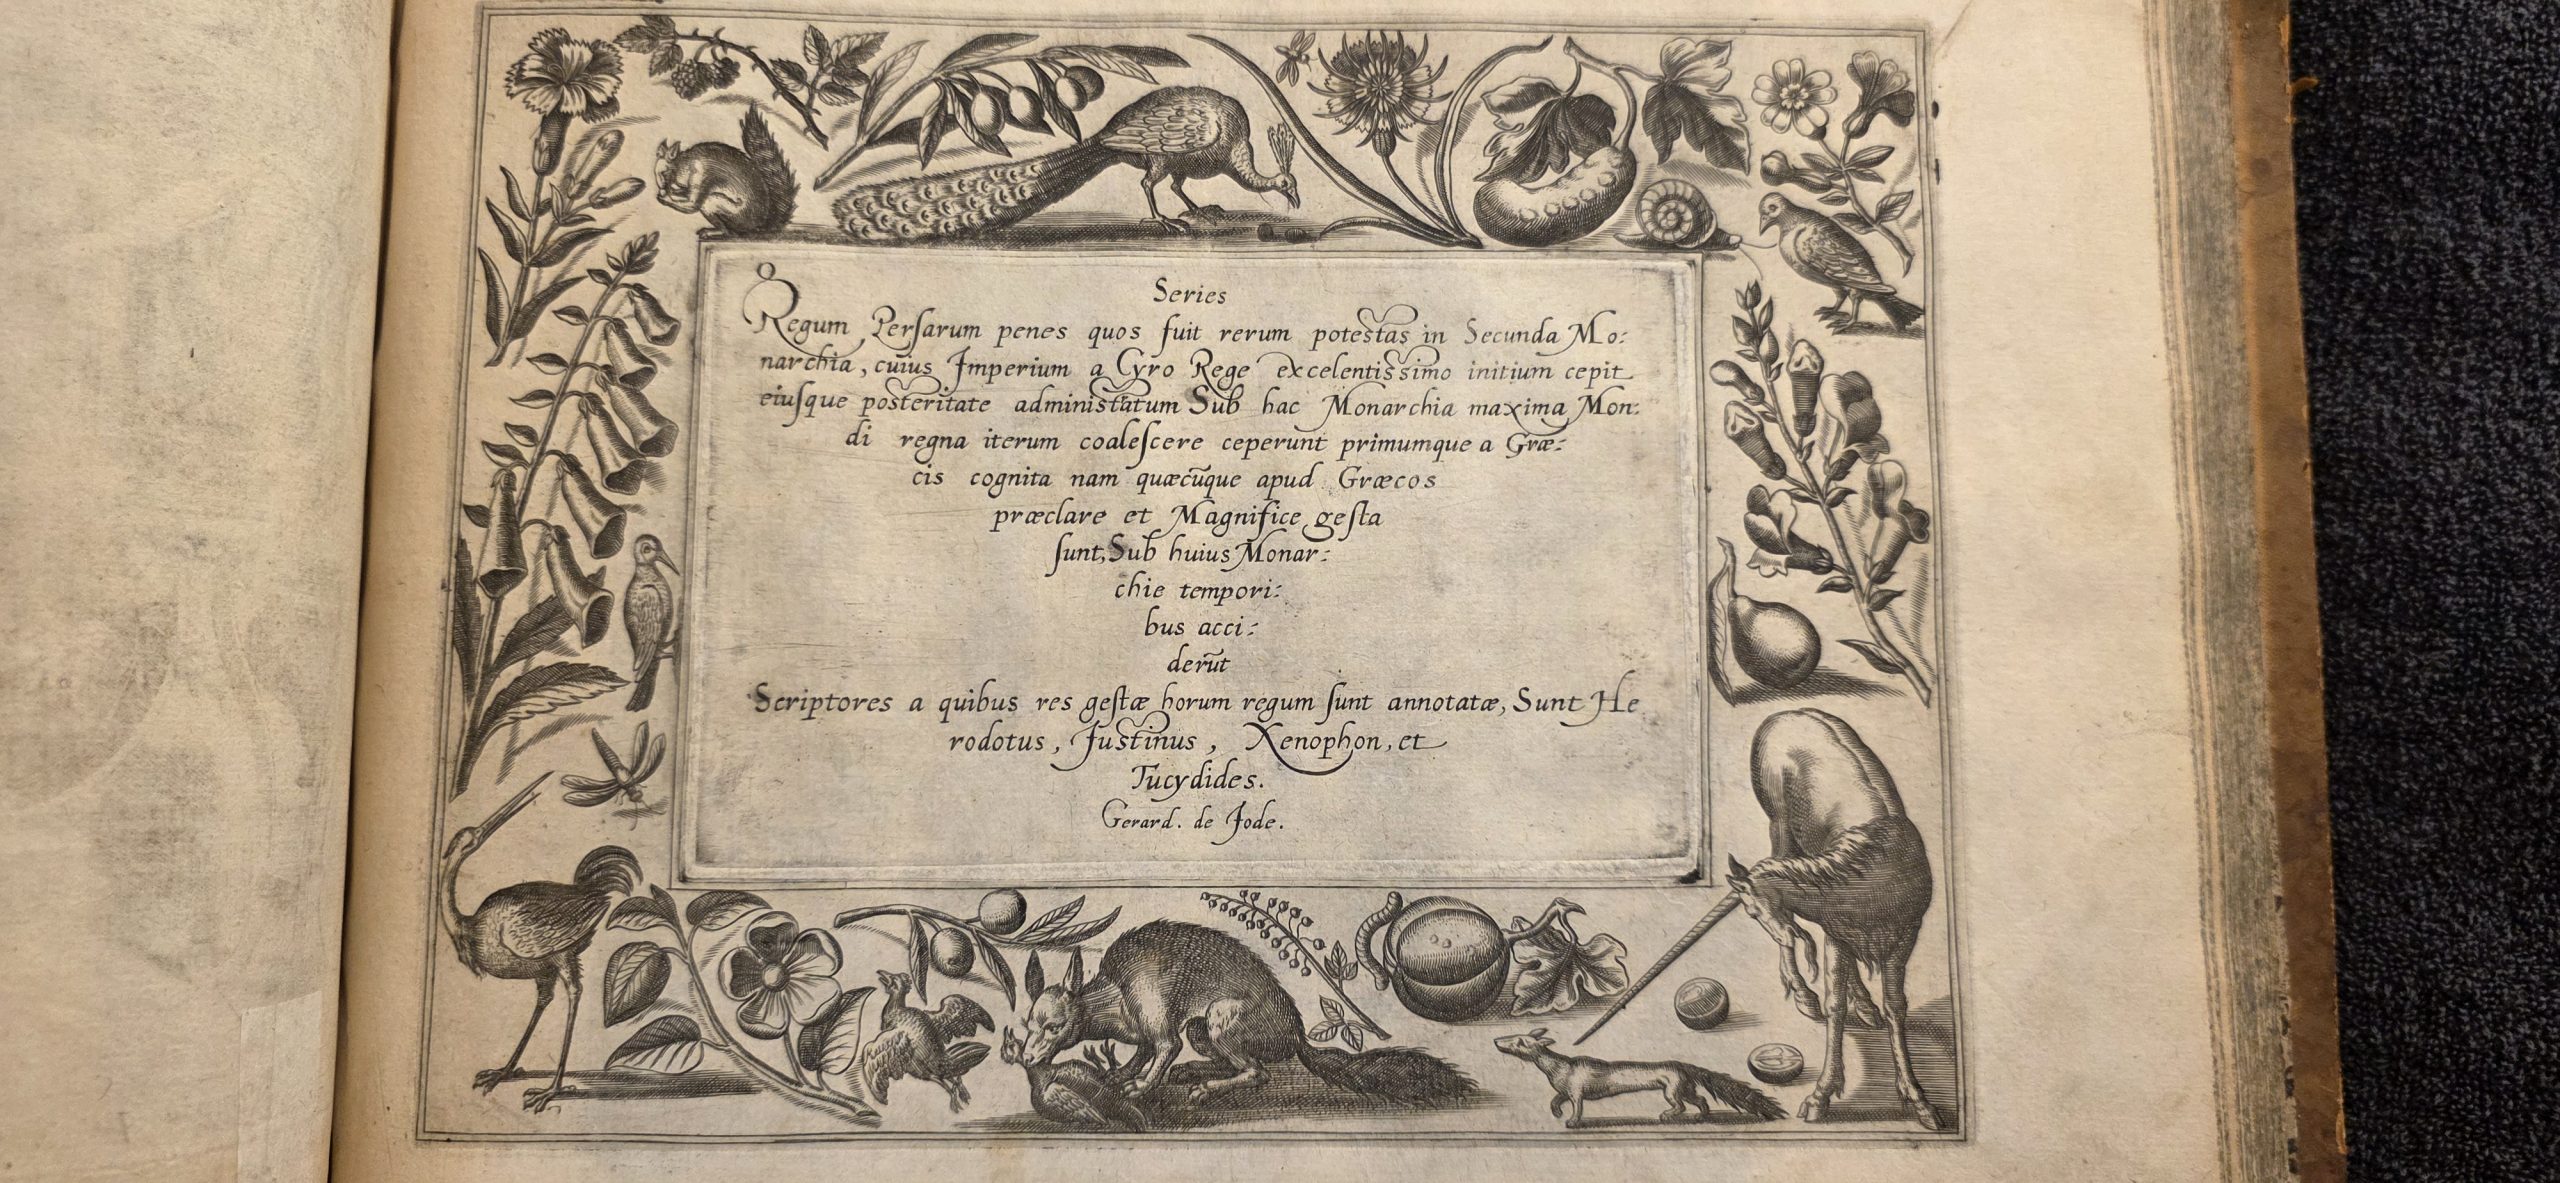 Series
Regum Persarum penes quos fuit rerum potestas in Secunda Mo:
narchia, cuius Imperium a Cyro Rege excelentissimo initium cepit
eiusque posteritate administatum Sub hac Monarchia maxima Mon:
di regna iterum coalescere ceperunt primumque a Græ:
cis cognita nam quæcūque apud Græcos
præclare et Magnifice gesta
sunt, Sub huius Monar:
chie tempori:
bus acci:
derūt
Scriptores a quibus res gestæ horum regum sunt annotatæ, Sunt He
rodotus, Justinus, Xenophon, et
Tucydides.
Gerard. de Jode.